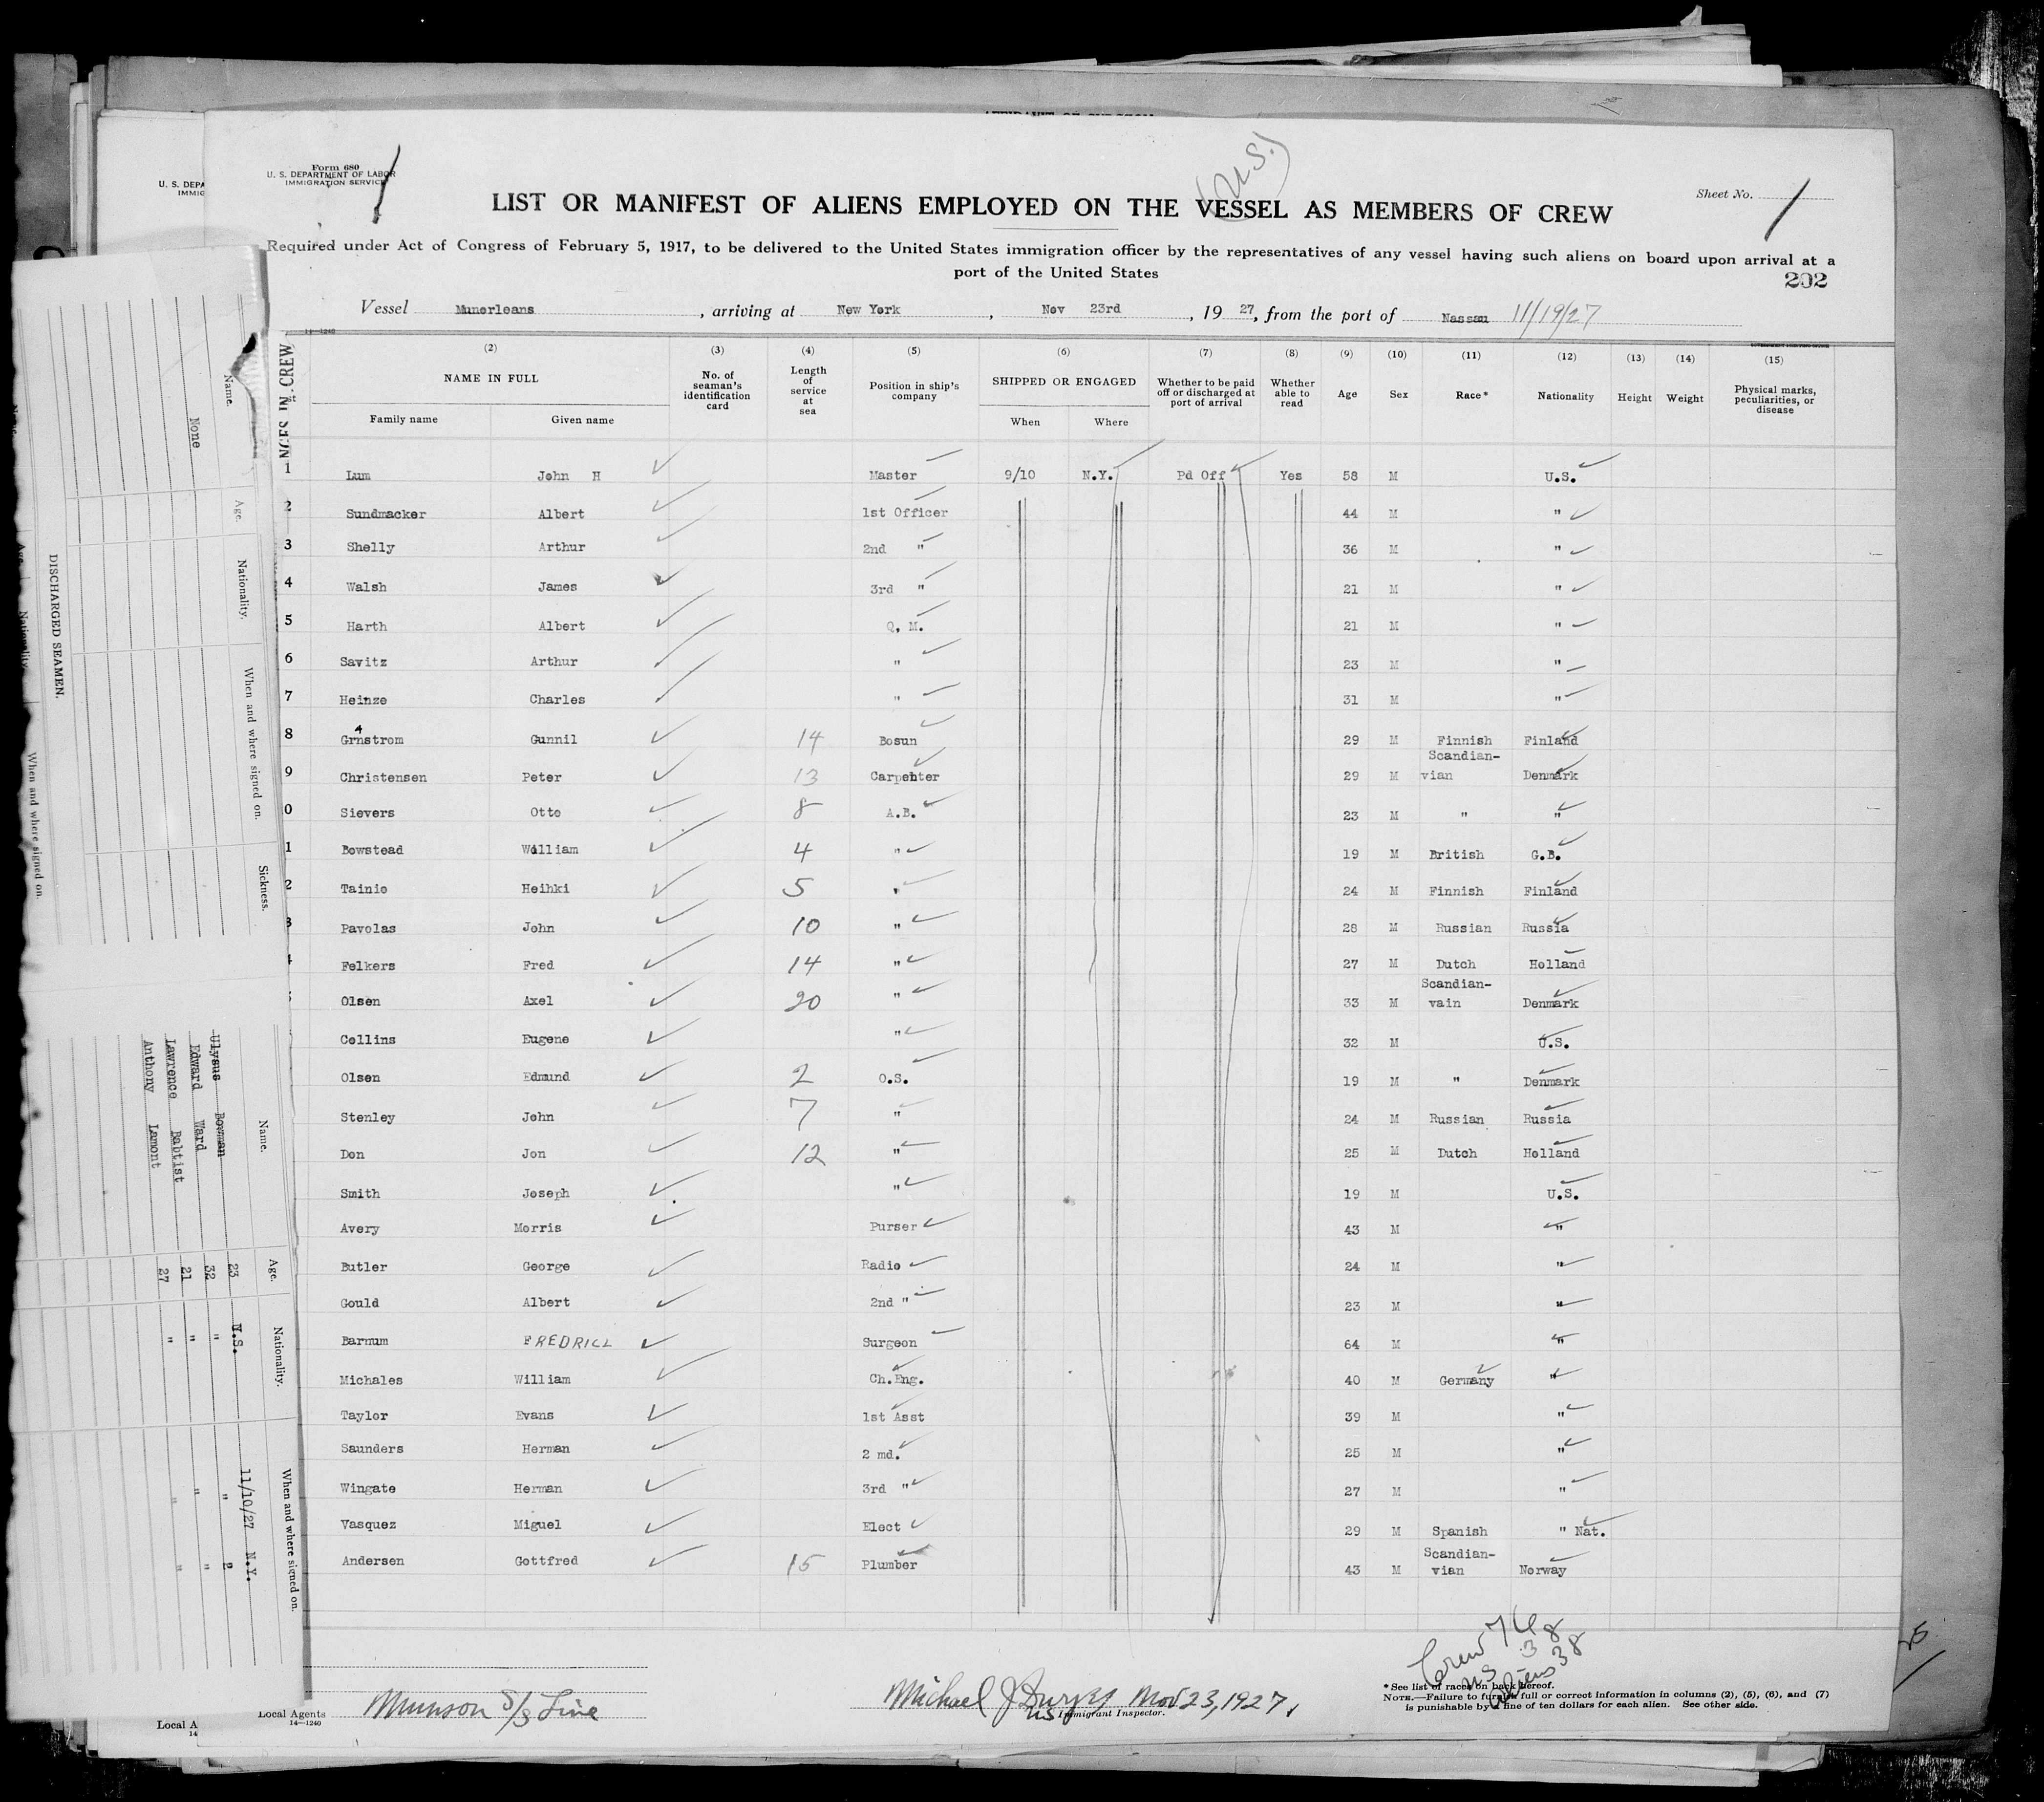 Form 680
U. S. DEPARTMENT OF LABOR
IMMIGRATION SERVICE
1
(U.S.)
Sheet No. 1
LIST OR MANIFEST OF ALIENS EMPLOYED ON THE VESSEL AS MEMBERS OF CREW
Required under Act of Congress of February 5, 1917, to be delivered to the United States immigration officer by the representatives of any vessel having such aliens on board upon arrival at a
port of the United States
202
Vessel Munorleans, arriving at New York, Nov 23rd, 1927, from the port of Nassau 11/19/27
14—1240
(2) (3) (4) (5) (6) (7) (8) (9) (10) (11) (12) (13) (14) (15)
NAME IN FULL No. of seaman's identification card Length of service at sea Position in ship's company SHIPPED OR ENGAGED Whether to be paid off or discharged at port of arrival Whether able to read Age Sex Race* Nationality Height Weight Physical marks, peculiarities, or disease
Family name Given name When Where
1 Lum John H Master 9/10 N.Y. Pd Off Yes 58 M U.S.
2 Sundmacker Albert 1st Officer 44 M "
3 Shelly Arthur 2nd " 36 M "
4 Walsh James 3rd " 21 M "
5 Harth Albert Q. M. 21 M "
6 Savitz Arthur " 23 M "
7 Heinze Charles " 31 M "
8 Grnstrom Gunnil 14 Bosun 29 M Finnish Finland
9 Christensen Peter 13 Carpenter 29 M Scandian-vian Denmark
0 Sievers Otto 8 A.B. 23 M " "
1 Bowstead William 4 " 19 M British G.B.
2 Tainio Heihki 5 " 24 M Finnish Finland
3 Pavolas John 10 " 28 M Russian Russia
Felkers Fred 14 " 27 M Dutch Holland
Olsen Axel 20 " 33 M Scandian-vain Denmark
Collins Eugene " 32 M U.S.
Olsen Edmund 2 O.S. 19 M " Denmark
Stenley John 7 " 24 M Russian Russia
Don Jon 12 " 25 M Dutch Holland
Smith Joseph " 19 M U.S.
Avery Morris Purser 43 M "
Butler George Radio 24 M "
Gould Albert 2nd " 23 M "
Barnum FREDRICL Surgeon 64 M "
Michales William Ch.Eng. 40 M Germany "
Taylor Evans 1st Asst 39 M "
Saunders Herman 2 md. 25 M "
Wingate Herman 3rd " 27 M "
Vasquez Miguel Elect 29 M Spanish " Nat.
Andersen Gottfred 15 Plumber 43 M Scandian-vian Norway
Crew 76
US 38
Aliens 38
Munson S/S Line
Local Agents
14—1240
Michael J Nov 23, 1927.
US Immigrant Inspector.
* See list of races on back hereof.
NOTE.—Failure to furnish full or correct information in columns (2), (5), (6), and (7)
is punishable by a fine of ten dollars for each alien. See other side.
U. S. DEPA
IMMIG
NGES IN CREW
Name. Age. Nationality. When and where signed on. Sickness.
None
DISCHARGED SEAMEN.
When and where signed on.
Name. Age. Nationality. When and where signed on.
Ulysus Bowman 23 U.S. 11/10/27 N.Y.
Edward Ward 32 " "
Lawrence Babtist 21 " " "
Anthony Lamont 27 " " "
Local A
14